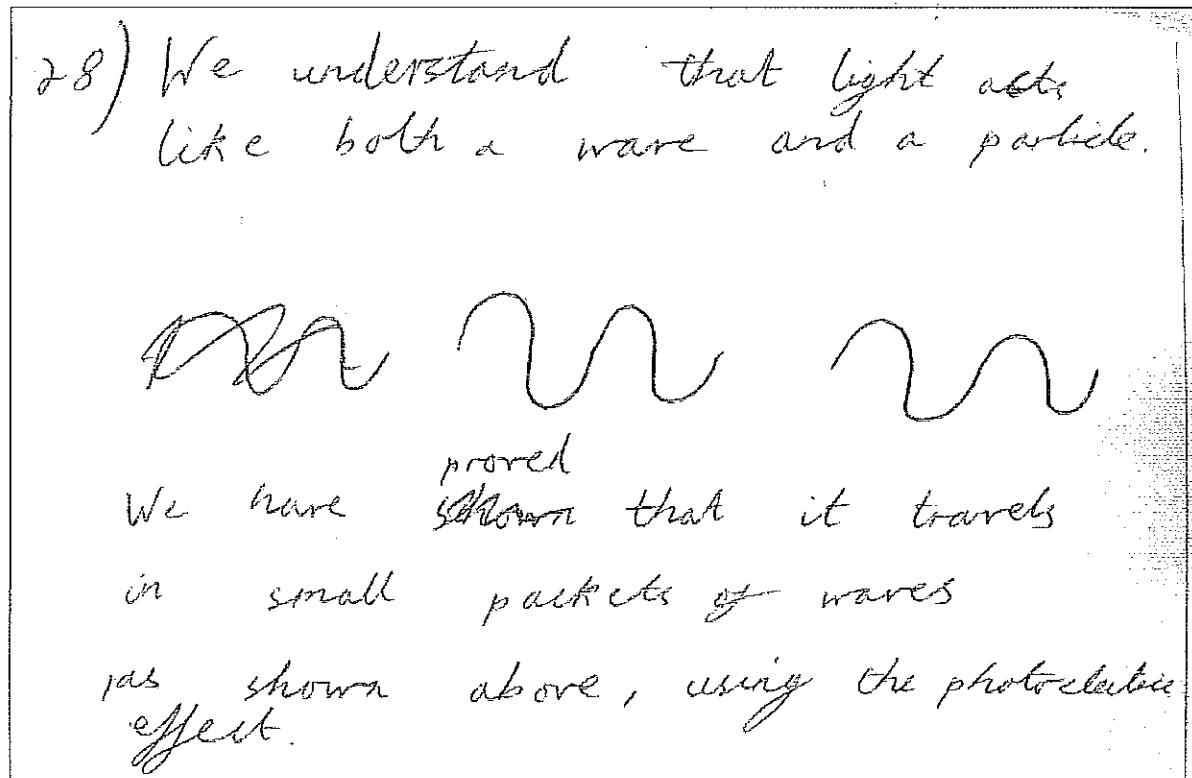 28) We understand that light acts
like both a wave and a particle.
proved
We have shown that it travels
in small packets of waves
, as shown above, using the photoelectric
effect.